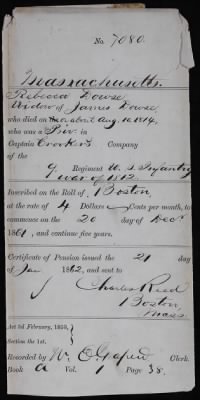 No. 7080.
Massachusetts.
Rebecca Dowse
Widow of James Dowse
who died on the about Aug. 10 1814,
who was a Priv. in
Captain Crooker's Company
of the
9 Regiment U. S. Infantry
War of 1812.
Inscribed on the Roll of Boston
at the rate of 4 Dollars Cents per month, to
commence on the 20 day of Decr
1861, and continue five years.
Certificate of Pension issued the 21 day
of Jan 1862, and sent to
Charles Reed
Boston
Mass.
Act 3d February, 1853,
Section the 1st.
Recorded by Clerk.
Book A Vol. 1 Page 38.